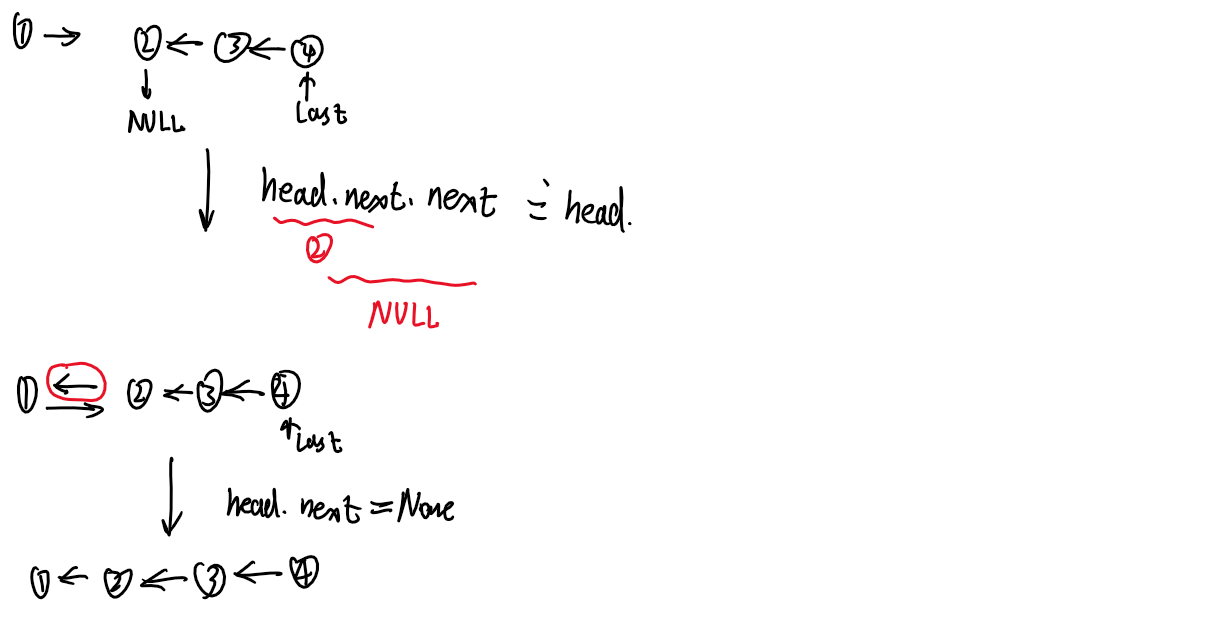 ① → ② ← ③ ← ④
↓ ↑
NULL Last
↓ head.next.next = head.
②
NULL
① ← → ② ← ③ ← ④
↑ Last
↓ head.next = None
① ← ② ← ③ ← ④